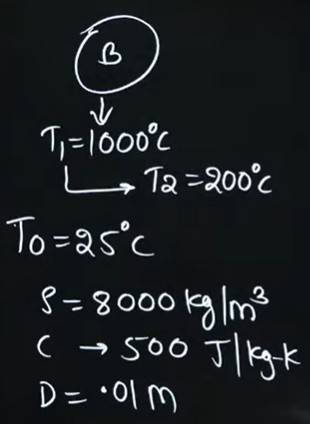 B
T₁=1000°C
T₂=200°C
T₀=25°C
ρ=8000 kg/m³
C → 500 J/kg-k
D= .01m